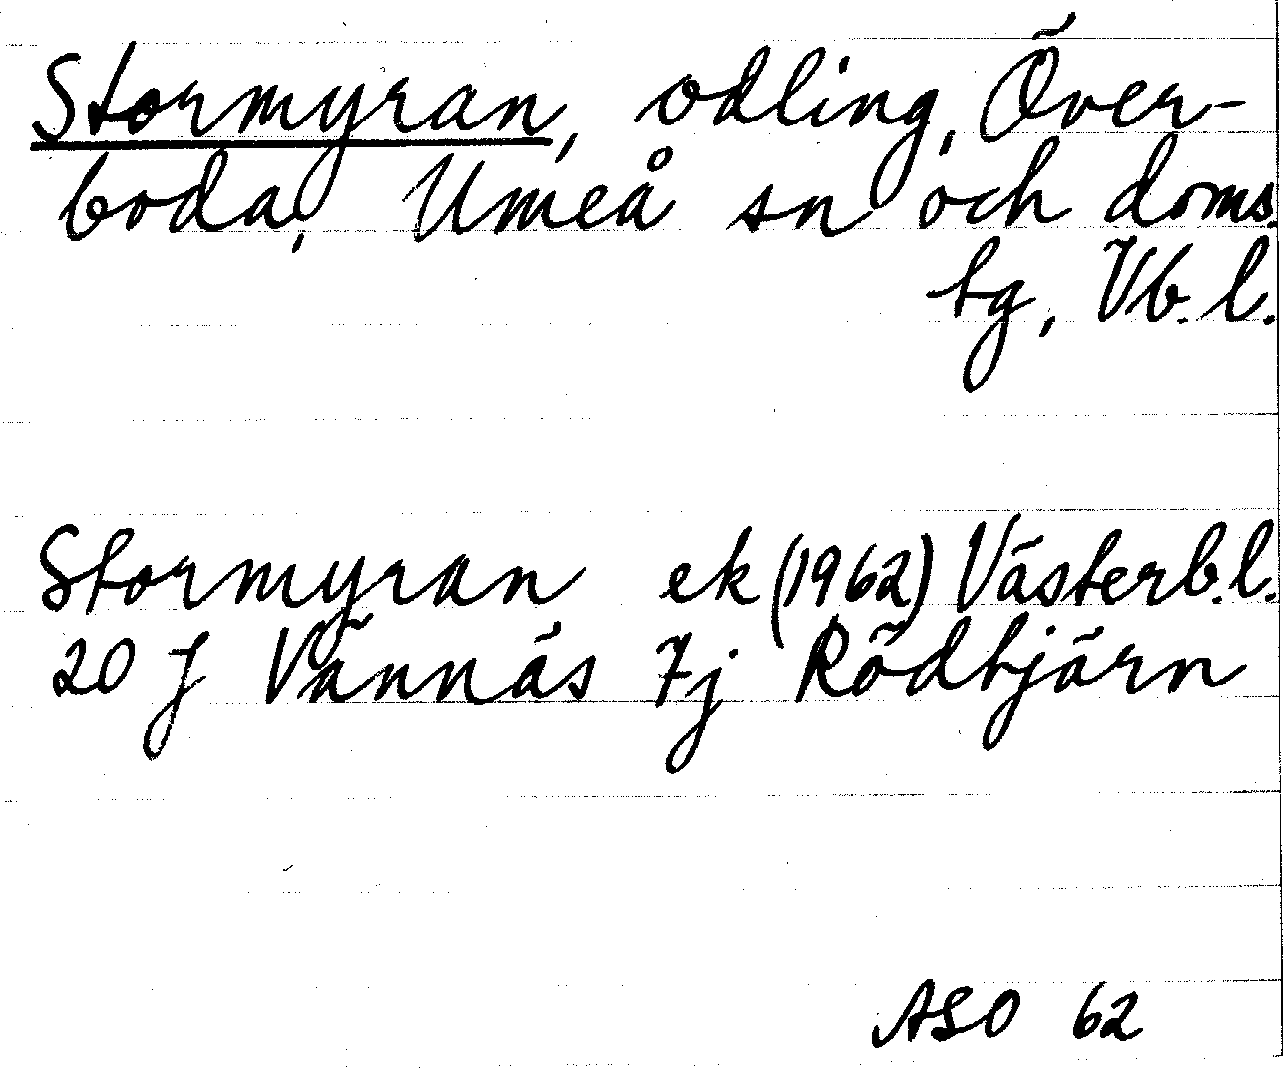 Stormyran, odling, Över-
boda, Umeå sn och doms.
tg, Vb. l.
Stormyran ek (1962) Västerb. l.
20 J Vännäs 7j Rödtjärn
ASO 62